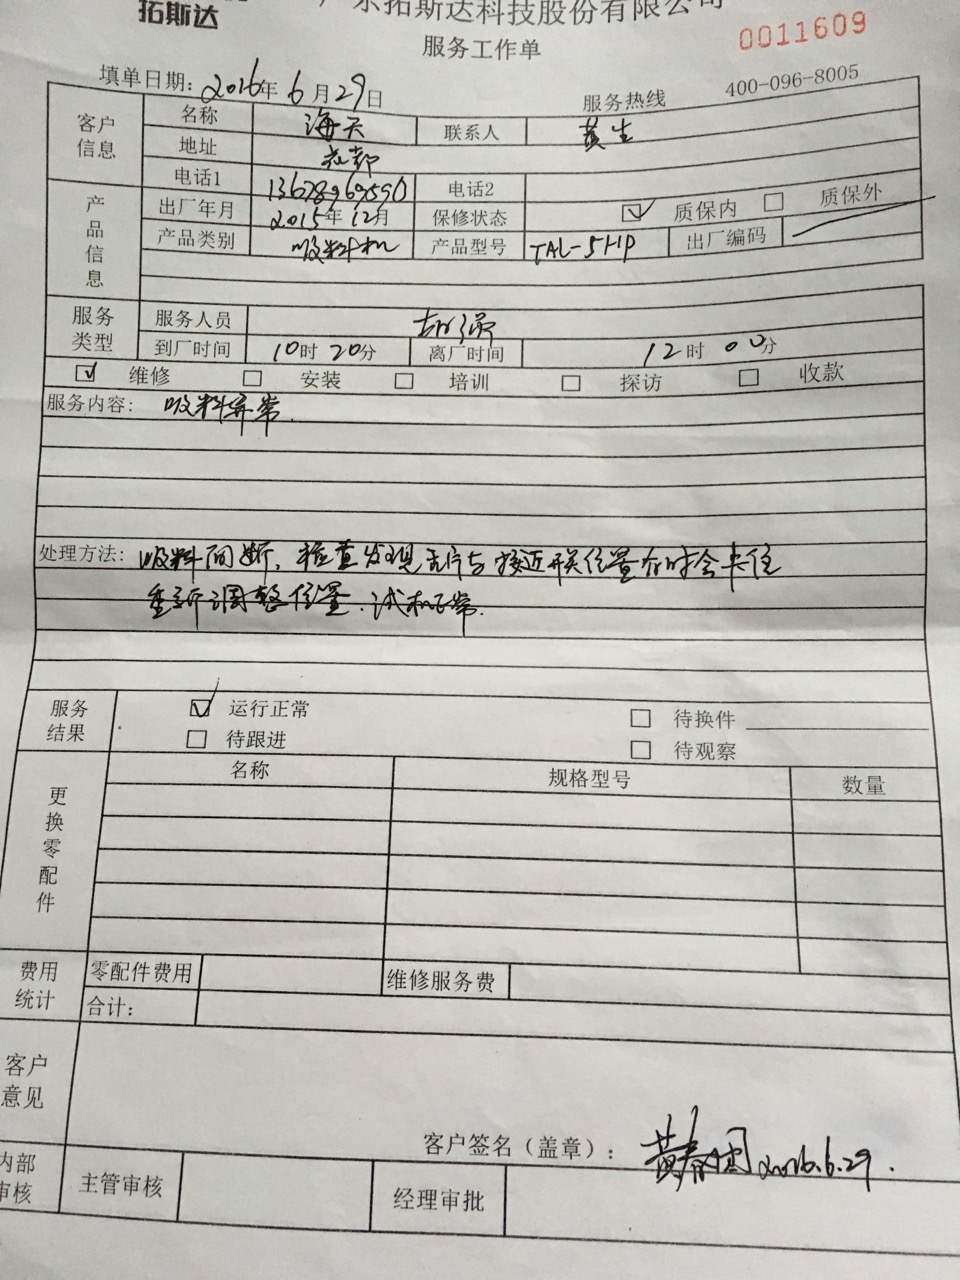 拓斯达
广东拓斯达科技股份有限公司
服务工作单
0011609
填单日期: 2016年 6 月 29 日
服务热线 400-096-8005
客户信息
名称 海天 联系人 黄生
地址 花都
电话1 电话2
产品信息
出厂年月 2015年 12月 保修状态 ☑ 质保内 □ 质保外
产品类别 吸料机 产品型号 TAL-5HP 出厂编码
服务类型
服务人员
到厂时间 10时 20分 离厂时间 12时 00分
☑ 维修 □ 安装 □ 培训 □ 探访 □ 收款
服务内容: 吸料异常.
处理方法: 吸料间断, 检查发现 与接近开关位置有时会卡住
重新调整位置. 试机正常.
服务结果
☑ 运行正常 □ 待换件
□ 待跟进 □ 待观察
更换零配件
名称 规格型号 数量
费用统计
零配件费用 维修服务费
合计:
客户意见
客户签名（盖章）: 黄春 2016.6.29.
内部审核
主管审核 经理审批